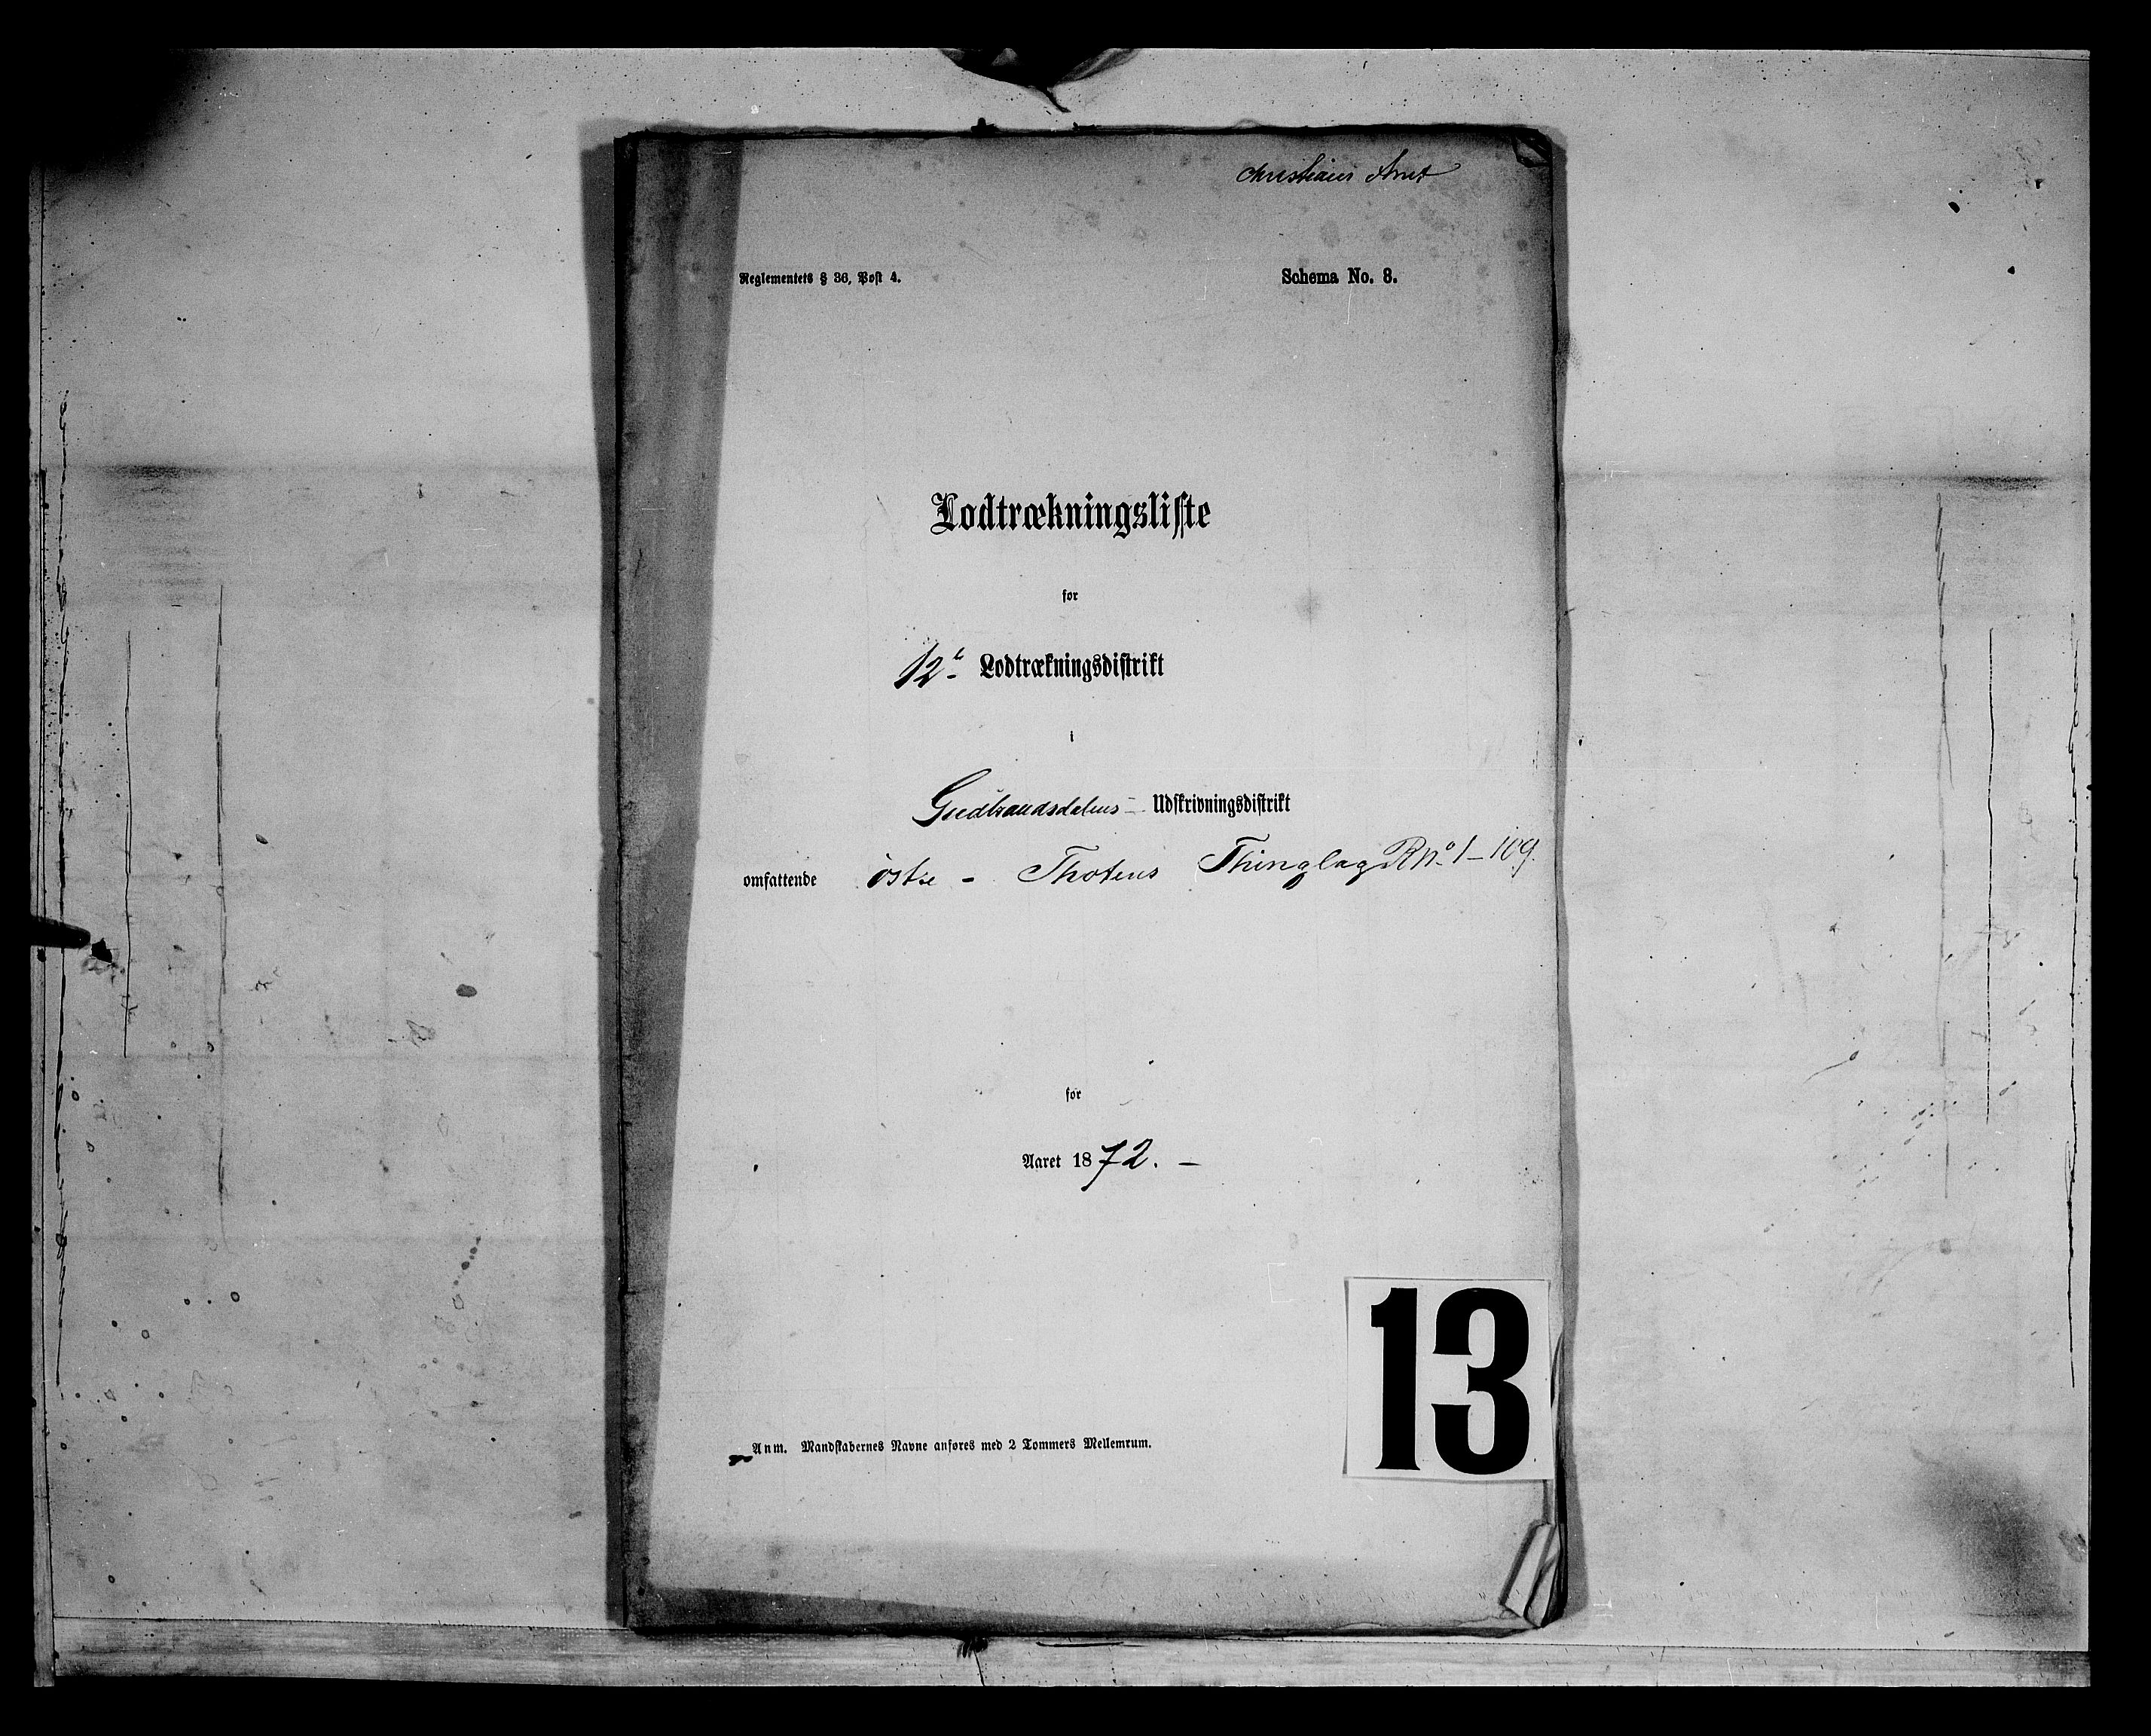 Christians Amt
Reglementets § 36, Post 4.
Schema No. 8.
Lodtrækningsliste
for
12te Lodtrækningsdistrikt
i
Gudbrandsdalens Udskrivningsdistrikt
omfattende østre - Thotens Thinglag R No 1-109.
for
Aaret 1872. -
13
Anm. Mandskabernes Navne anføres med 2 Tommers Mellemrum.